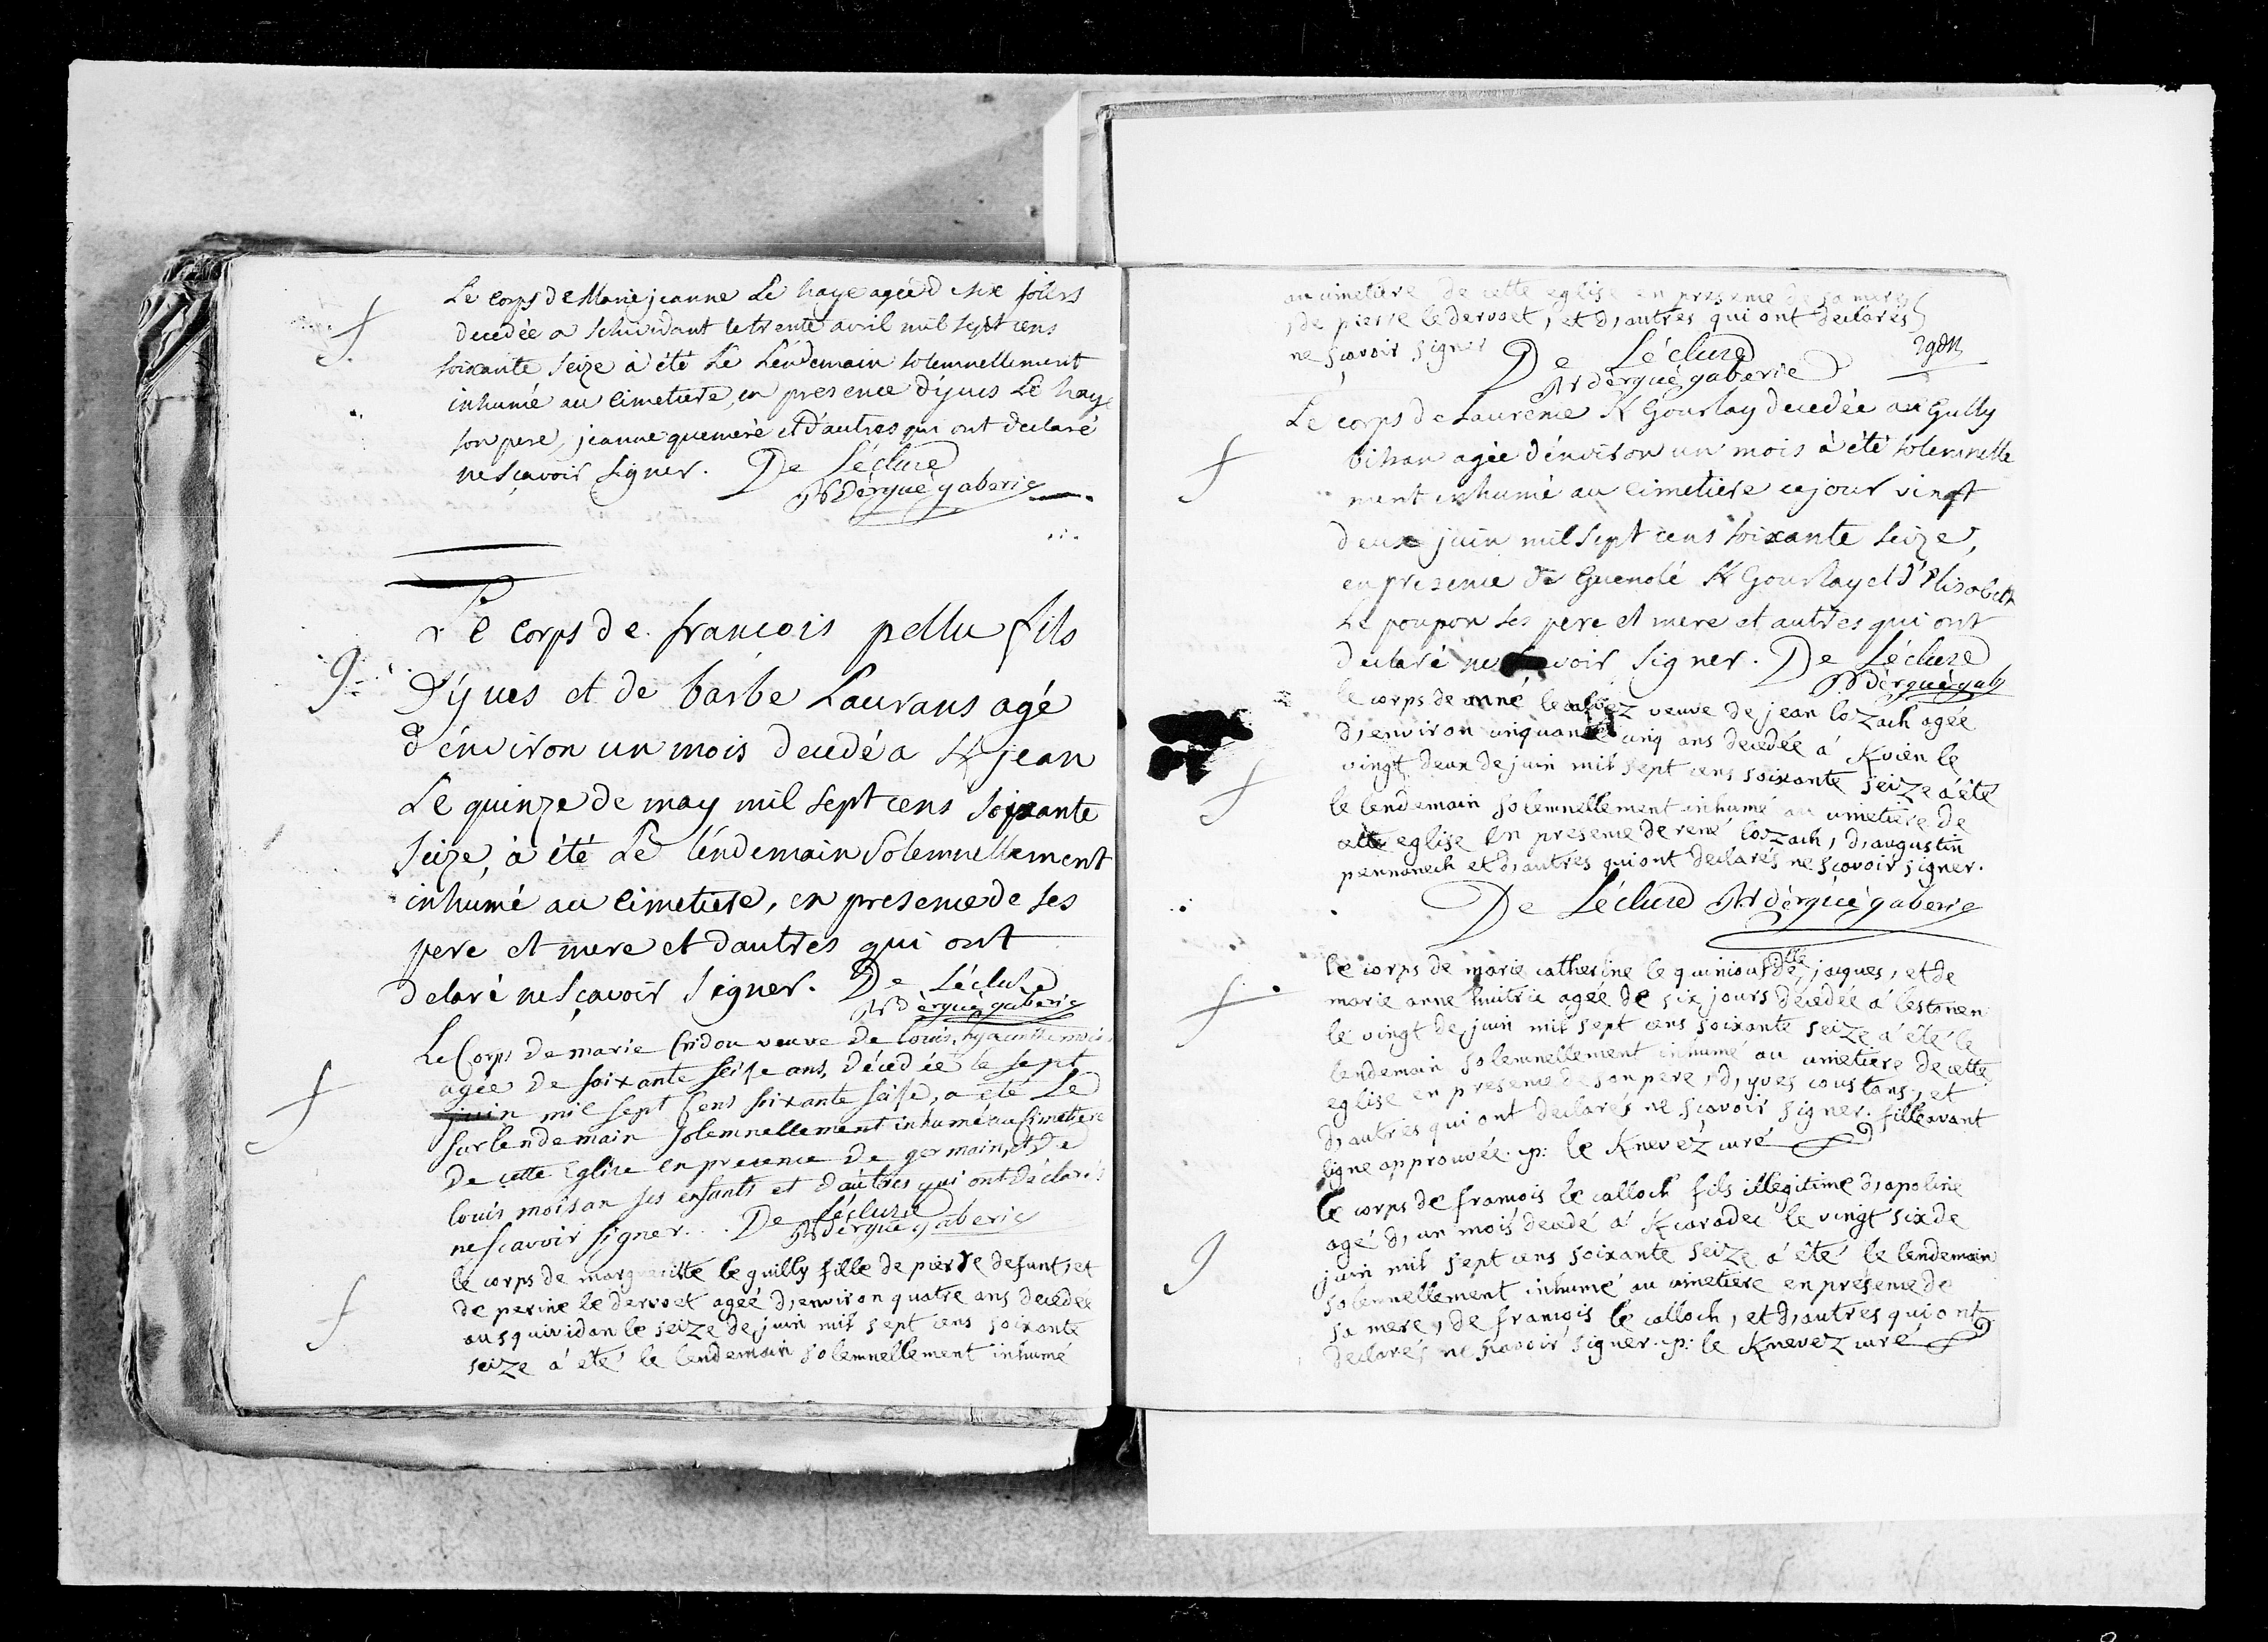 f
Le corps de Marie jeanne Le haye agée de six jours
decedée a schividant le trente avril mil sept cens
soixante seize à été Le Lendemain solemnellement
inhumé au cimetiere, en presence d'yves Le haye
son pere, jeanne quemeré et d'autres qui ont declaré
ne sçavoir signer. De Lécluse
Rr dèrguè gaberic
g
Le corps de françois pellu fils
D'yves et de barbe Laurans agé
d'énviron un mois decedé a St jean
Le quinze de may mil sept cens soixante
seize, à été Le léndemain solemnellement
inhumé au cimetiere, en presence de ses
pere et mere et dautres qui ont
delaré ne sçavoir signer. De Lécluse
Rr dèrguè gaberic
f
Le Corps de marie Cridou veuve de louis hyacinthe
agée de soixante seize ans, décedée le sept
juin mil sept Cens soixante seise, a été Le
surlendemain solemnellement inhumé au Cimetiere
De cette Eglise en presence de germain, et De
louis moisan ses enfants et d'autres qui ont déclarés
ne scavoir signer. De Lécluse
Rr dérgue gaberic
f
le corps de margueritte le guilly fille de pierre defunt, et
de perine le dervoet ageé d,environ quatre ans decedée
au squividan le seize de juin mil sept cens soixante
seize a été le lendemain solemnellement inhumé
au cimetiere de cette eglise en presence de sa mere,
,de pierre le dervoet, et d,autres qui ont declarés
ne sçavoir signer De Lécluse
Rr dèrguè gaberic
f
Le corps de Laurence K Gourlay decedée au Gully
bihan agée d'énviron un mois à été solemnelle
ment inhumé au cimetiere ce jour vingt
deux juin mil sept cens soixante seize,
en presence de Guenolé K Gourlay et d'Elisabeth
Le poupon ses pere et mere et autres qui ont
declaré ne sçavoir signer. De Lécluse
Rr dèrguè gab
f
le corps de anne veuve de jean lozach agée
d,environ cinquante cinq ans decedée a' Kvien le
vingt deux de juin mil sept cens soixante seize a été
le lendemain solemnellement inhumé au cimetiere de
cette eglise en presence de rené lozach, d,augustin
pennanech et d,autres qui ont declarés ne sçavoir signer.
De Lécluse Rr dèrguè gaberic
f
le corps de marie catherine le quiniou flle de, jacques, et de
marie anne huitric agée de six jours decedée a' lestonen
le vingt de juin mil sept cens soixante seize a' été le
lendemain solemnellement inhumé au cimetiere de cette
eglise en presence de son pere, d, yves coustans, et
d,autres qui ont declarés ne sçavoir signer. fille avant
ligne approuvée. p: le Knevéz curé
g
le corps de françois le calloch fils illegitime d,apoline
agé d, un mois decedé a' Kcaradec le vingt six de
juin mil sept cens soixante seize a' été le lendemain
solemnellement inhumé au cimetiere en presence de
sa mere, de françois le calloch, et d,autres qui ont
declarés ne scavoir signer. p: le Knevez curé